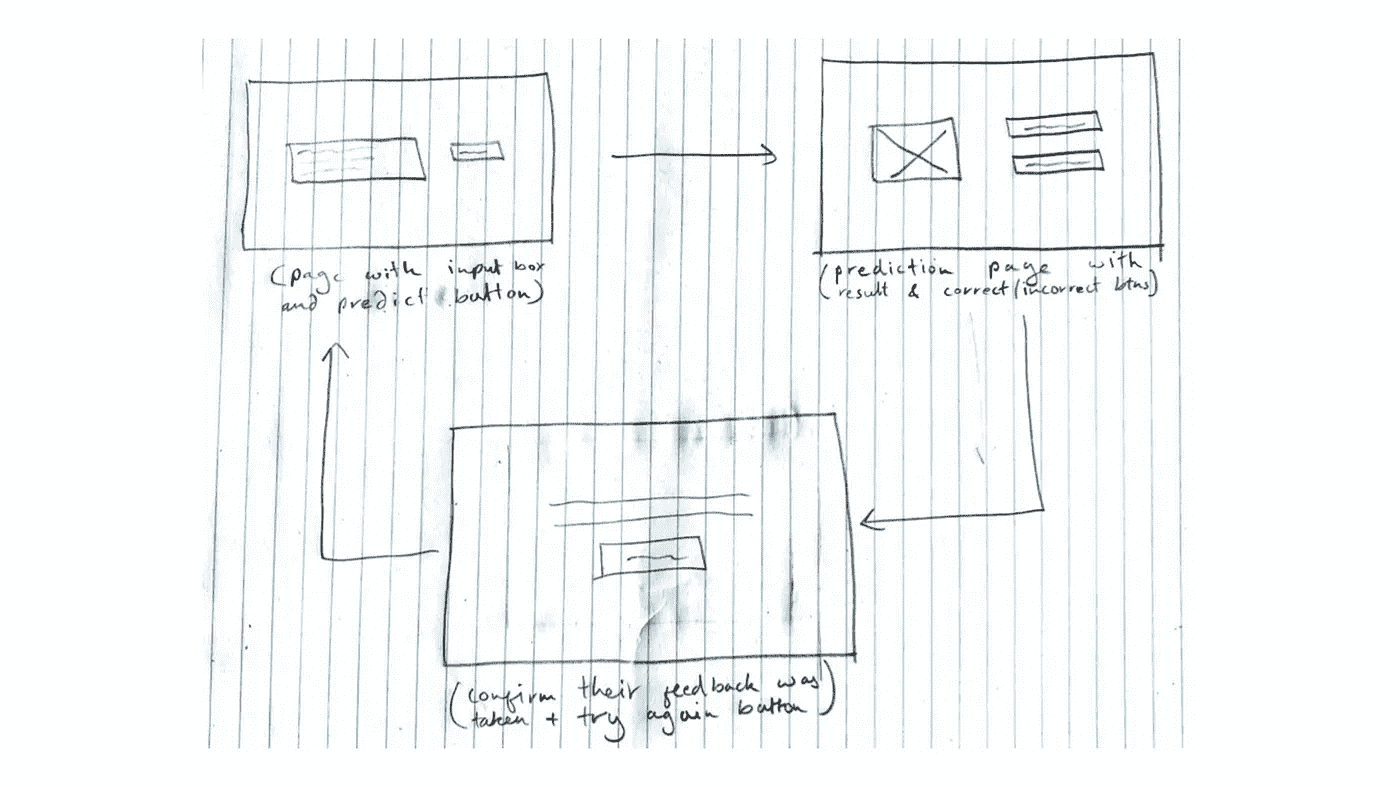 (page with input box
and predict button)
(prediction page with
result & correct/incorrect btns)
(confirm their feedback was
taken + try again button)